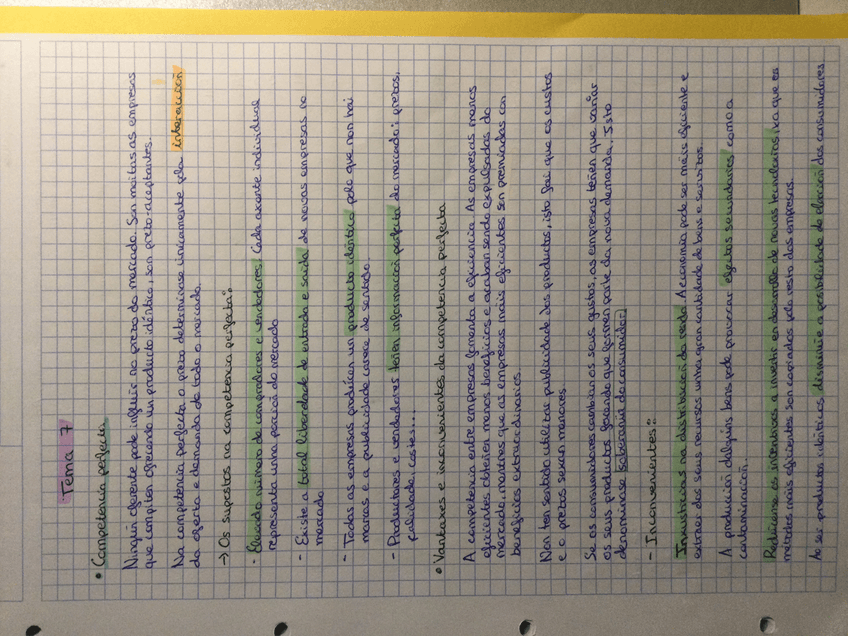 Tema 7
• Competencia perfecta
Ningún oferente pode influír no prezo do mercado. Son moitas as empresas
que compiten ofrecendo un producto idéntico, son prezo-aceptantes.
Na competencia perfecta o prezo determínase unicamente pola interacción
da oferta e demanda de todo o mercado.
→ Os supostos na competencia perfecta:
- Elevado número de compradores e vendedores. Cada axente individual
representa unha porción do mercado
- Existe a total liberdade de entrada e saída de novas empresas no
mercado
- Todas as empresas producen un producto idéntico polo que non hai
marcas e a publicidade carece de sentido.
- Productores e vendedores teñen información perfecta do mercado: prezos,
calidade, costes...
• Vantaxes e inconvenientes da competencia perfecta
A competencia entre empresas fomenta a eficiencia. As empresas menos
eficientes obteñen menos beneficios e acaban sendo expulsadas do
mercado, mentres que as empresas máis eficientes son premiadas con
beneficios extraordinarios
Non ten sentido utilizar publicidade dos productos, isto fai que os custos
e o prezos sexan menores
Se os consumidores cambian os seus gustos, as empresas teñen que variar
os seus productos facendo que formen parte da nova demanda. Isto
denomínase soberanía do consumidor.
- Inconvenientes:
Inxustizas na distribución da renda. A economía pode ser máis eficiente e
extraer dos seus recursos unha gran cantidade de bens e servizos.
A produción dalgúns bens pode provocar efectos secundarios como a
contaminación.
Redúcense os incentivos a investir en desarrollo de novas tecnoloxías, xa que os
métodos máis eficientes son copiados polo resto das empresas.
Ao ser productos idénticos disminúe a posibilidade de elección dos consumidores